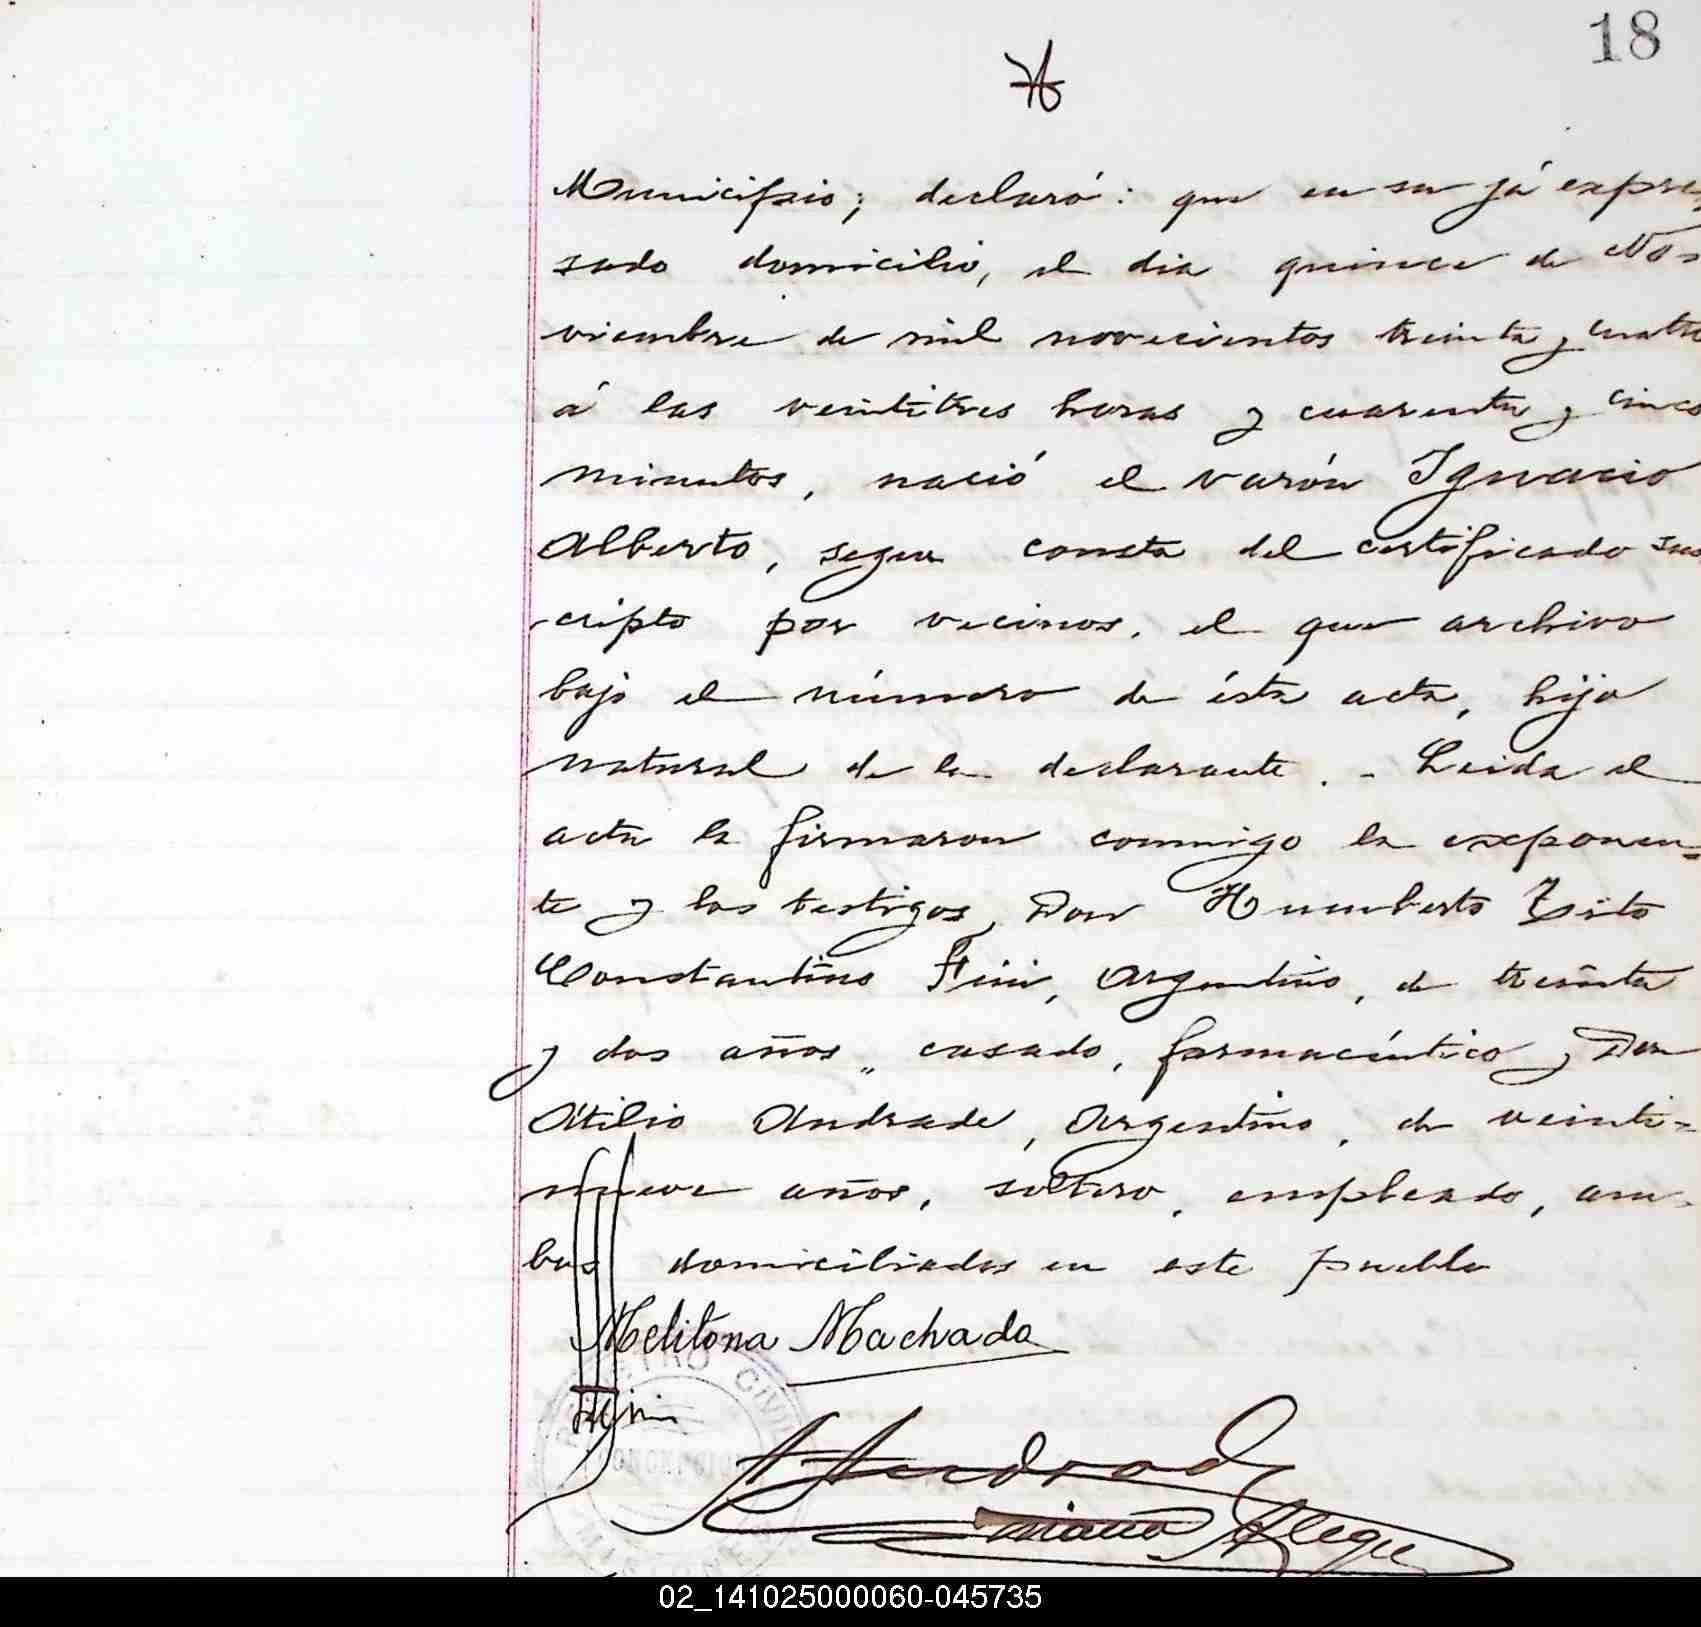 18
Municipio; declaró: que en su já expre-
sado domicilio, el dia quince de No-
viembre de mil novecientos treinta y cuatro
á las veintitres horas y cuarenta y cinco
minutos, nació el varón Ignacio
Alberto, segun consta del certificado sus-
cripto por vecinos, el que archivo
bajo el número de ésta acta, hijo
natural de la declarante. - Leida el
acta la firmaron conmigo la exponen=
te y los testigos, Don Humberto Tito
Constantino Fini, Argentino, de treinta
y dos años, casado, farmacéutico y Don
Atilio Andrade, Argentino, de veinti=
nueve años, soltero, empleado, am-
bos domiciliados en este pueblo
Melitona Machado
Fini
A Andrade
Alegre
REGISTRO CIVIL
MISIONES
02_141025000060-045735